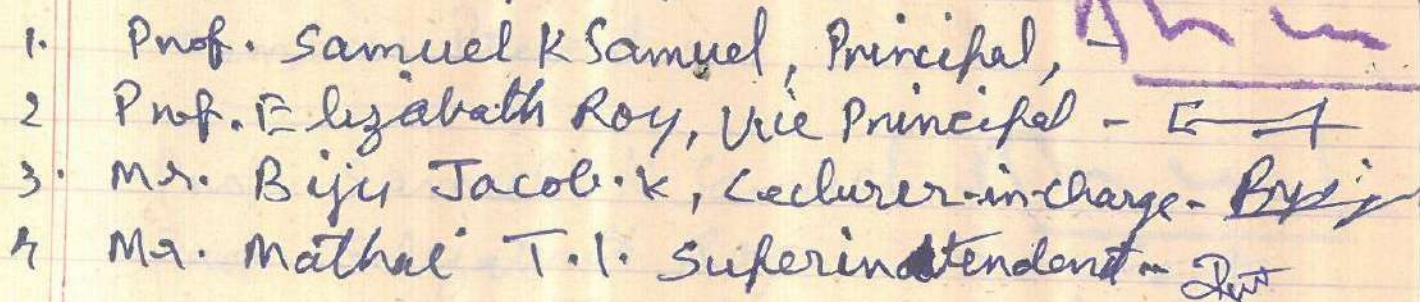 1. Prof. Samuel K Samuel, Principal, -
2 Prof. Elizabath Roy, Vice Principal -
3. Mr. Biju Jacob. K, Lecturer-in-charge -
4 Mr. Mathai T.I. Superintendent -